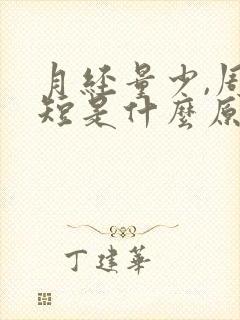 月经量少,周
短是什麼原
丁建華